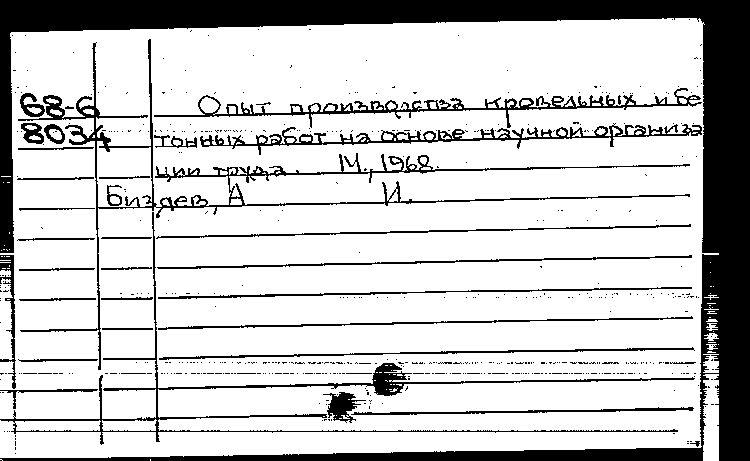 68-6 Опыт производства кровельных и бе
8034 тонных работ на основе научной организа
ции труда. М., 1968.
Бизяев, А И.